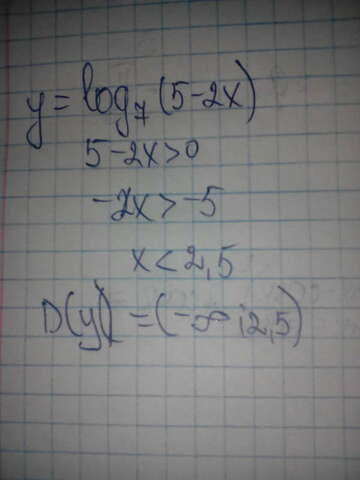 y = log₇(5-2x)
5-2x>0
-2x>-5
x<2,5
D(y) = (-∞;2,5)